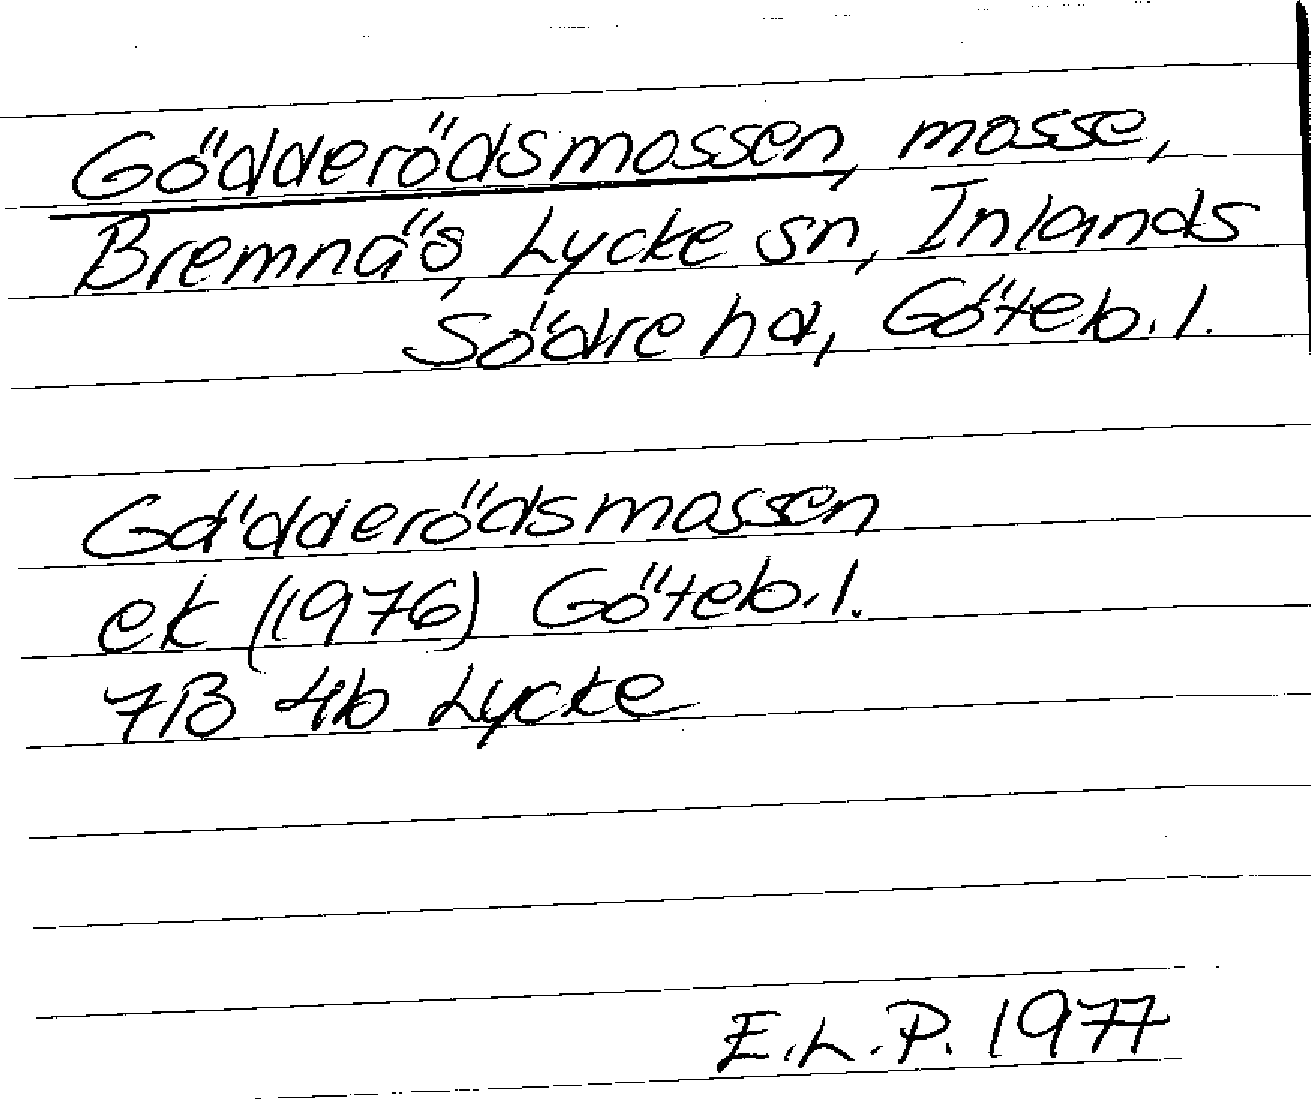 Gödderödsmossen, mosse,
Bremnäs, Lycke sn, Inlands
Södre hd, Göteb. l.
Gädderödsmossen
ek (1976) Göteb. l.
7B 4b Lycke
E.L.P. 1977